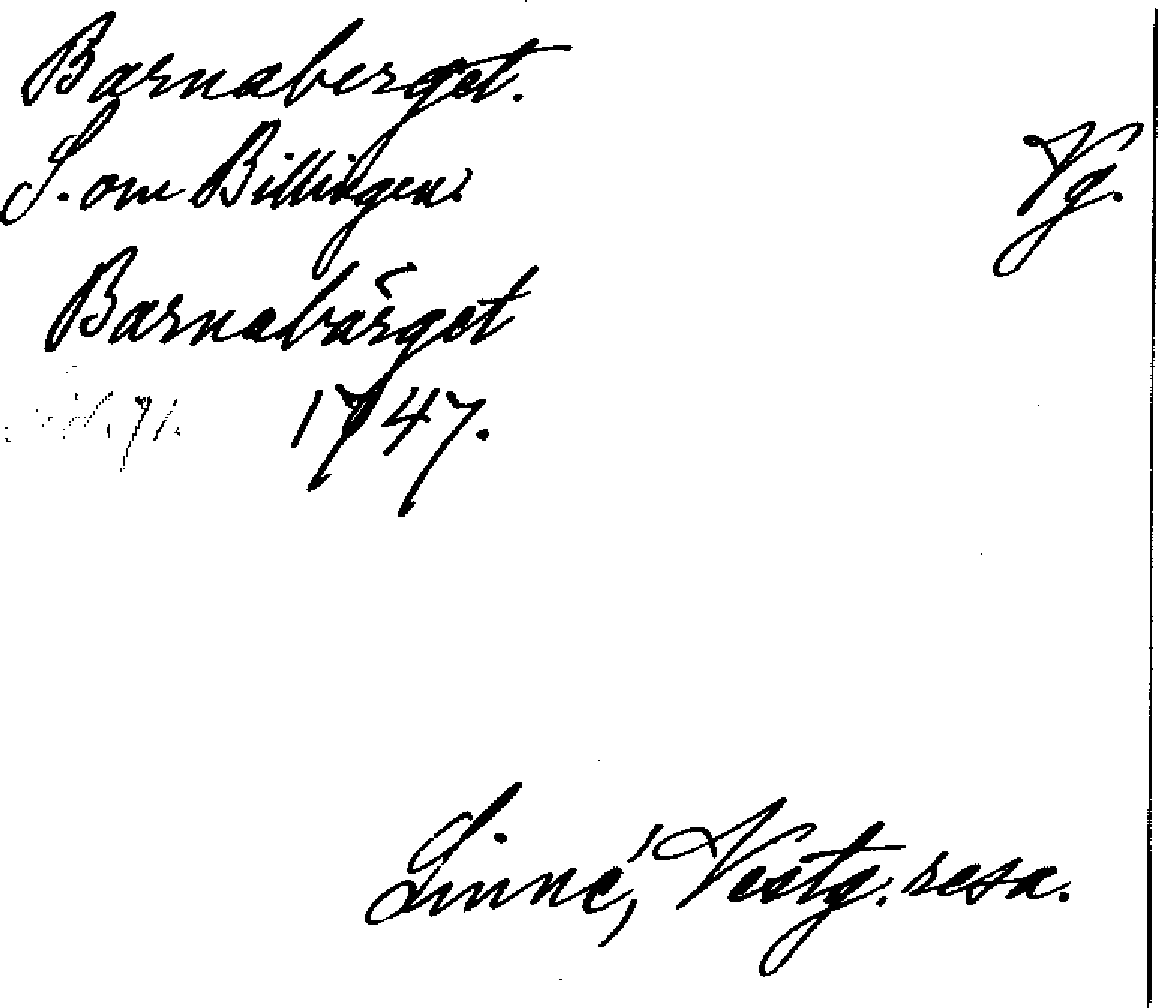 Barnaberget.
Vg.
S. om Billingen.
Barnabärget
1747.
Linné, Vestg. resa.